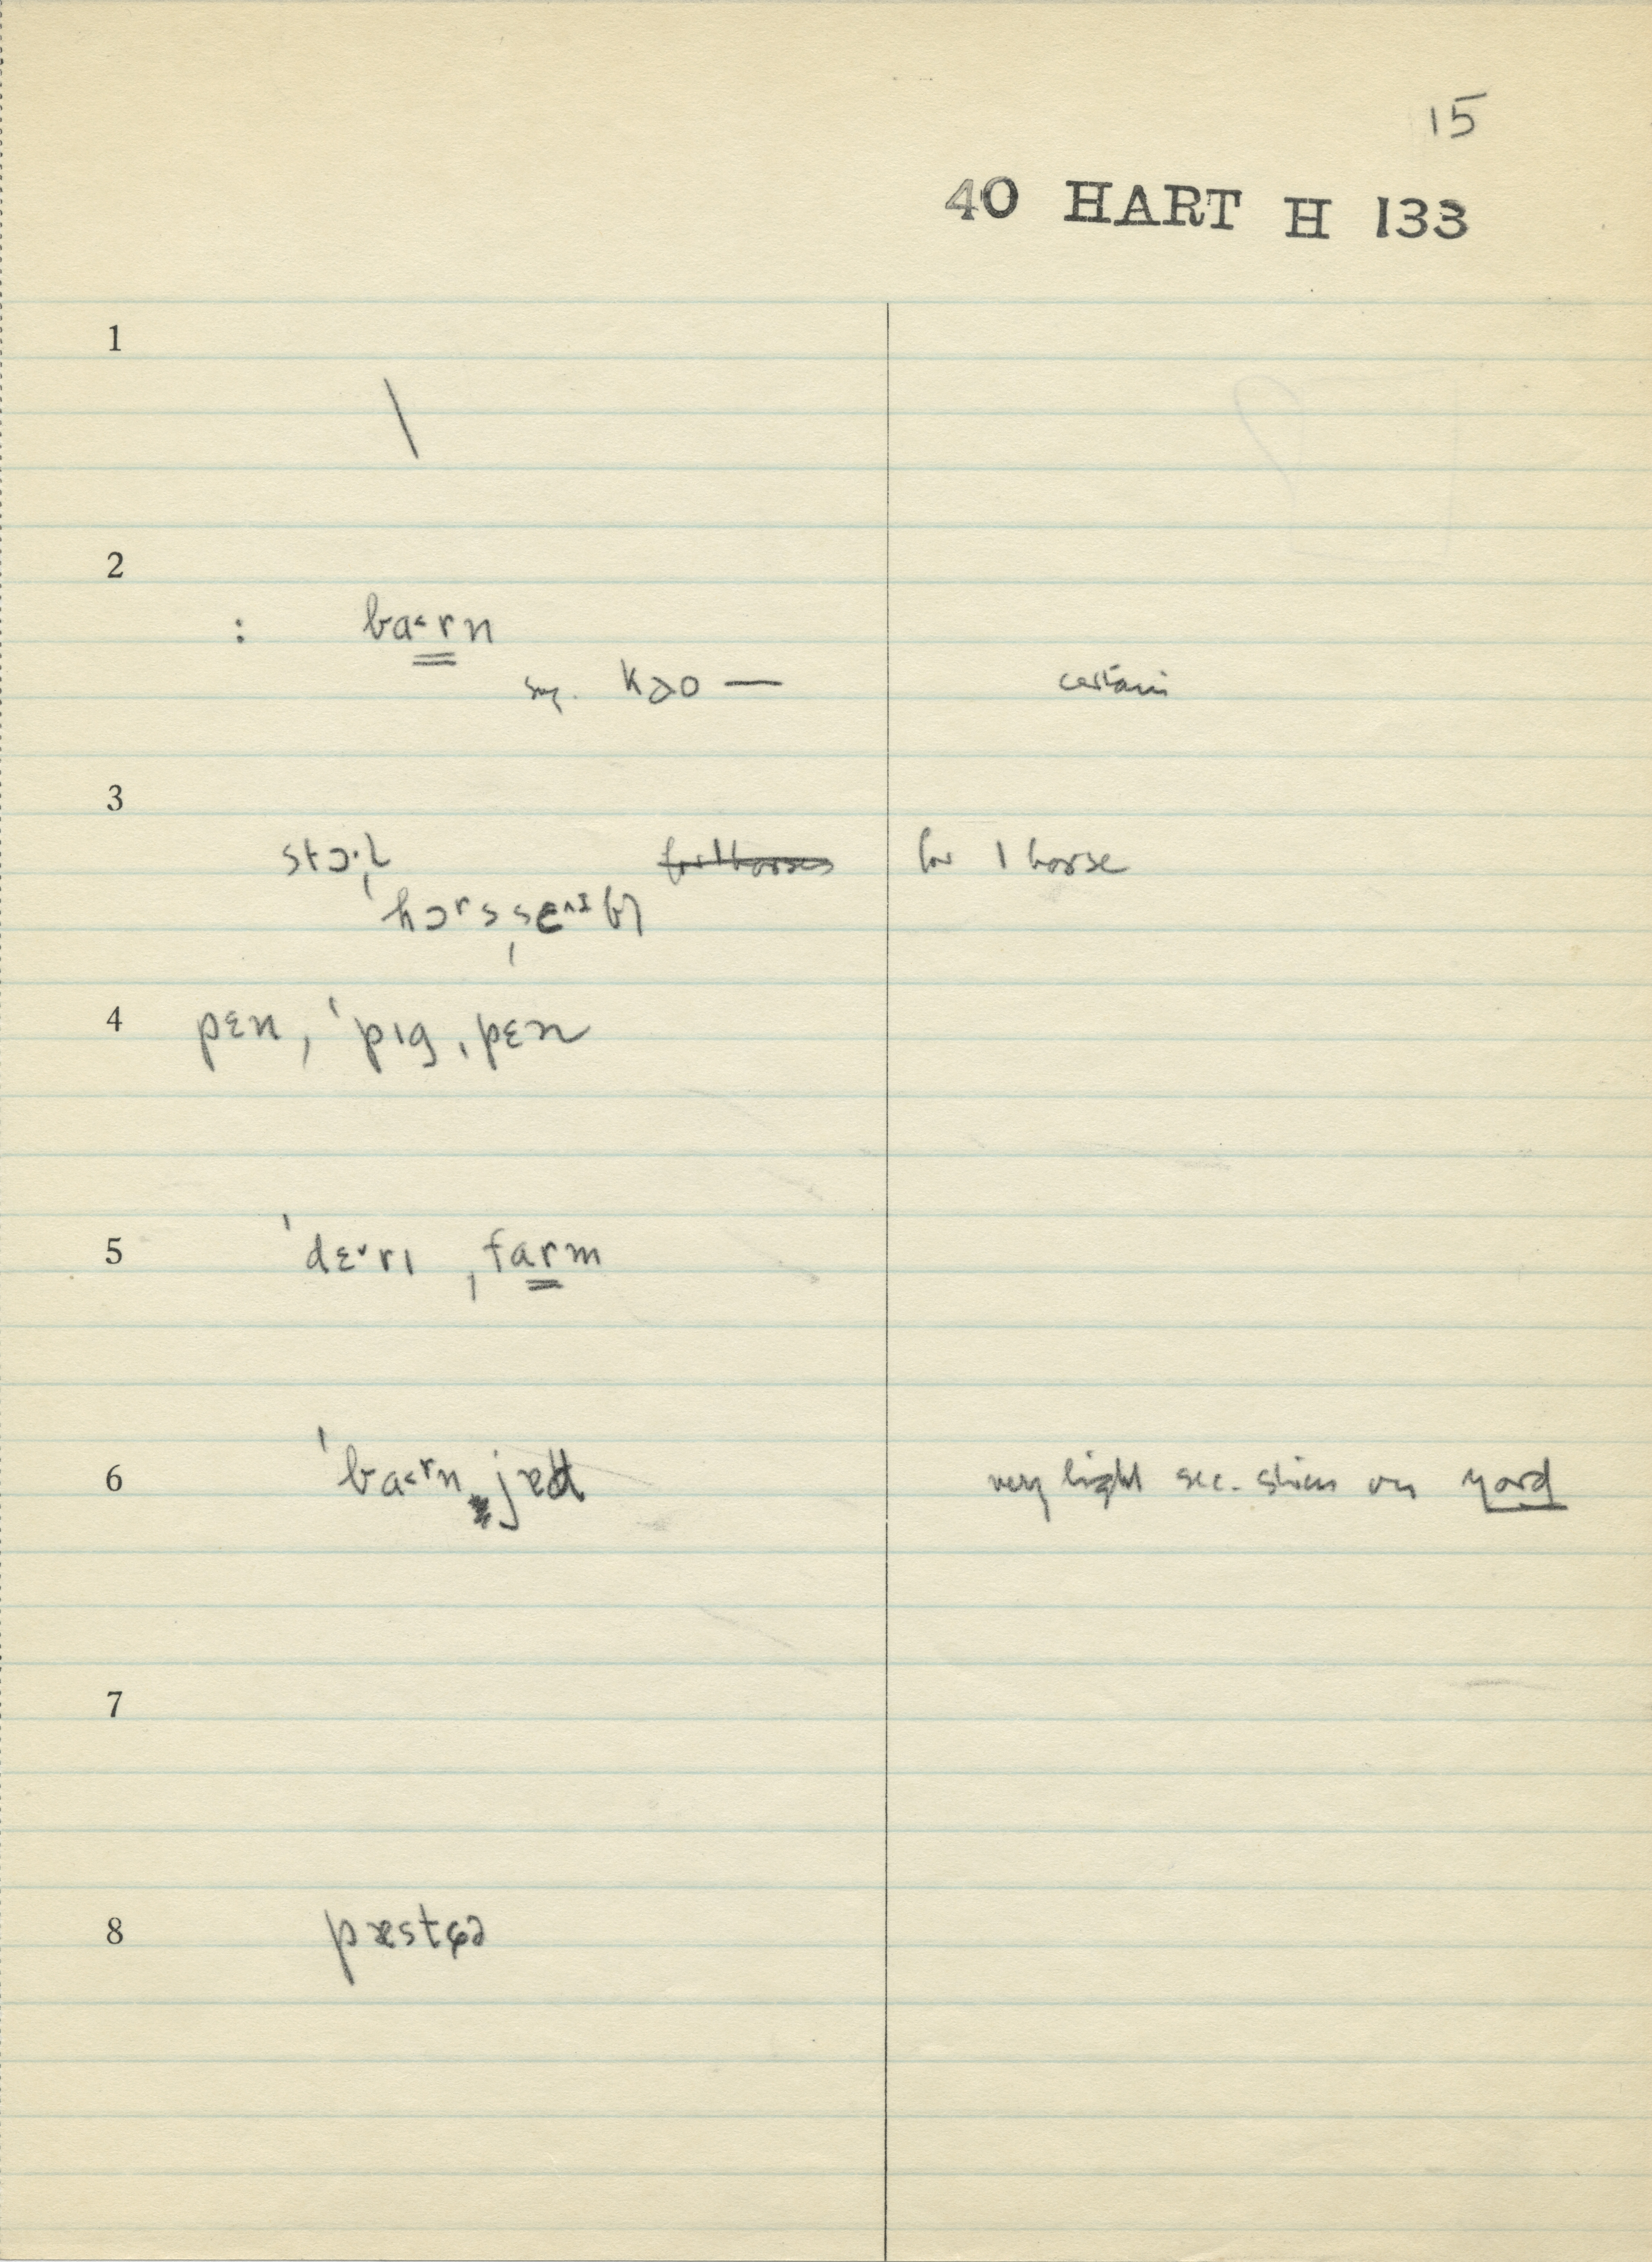 15
40 HART H 133
1
\
2
: ba˂rn
sug. kəo — certain
3
stɔ·ɫ for 1 horses for 1 horse
ˈhɔrsˌsɛ^ɪbɫ
4 pɛn, ˈpɪgˌpɛn
5 ˈdɛ˅rɪ ˌfarm
6 ˈba˂rn jɐd very light sec. stress on yard
7
8 pæstʃə